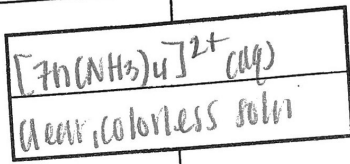 [Zn(NH3)4]2+ (aq)
clear, colorless soln